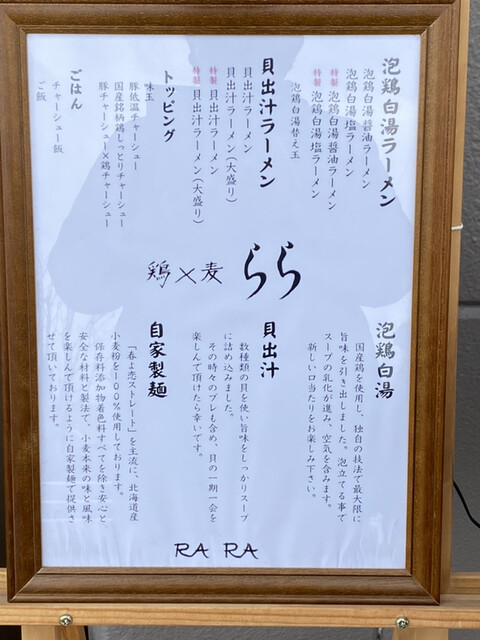 泡鶏白湯ラーメン
泡鶏白湯醤油ラーメン
泡鶏白湯塩ラーメン
特製 泡鶏白湯醤油ラーメン
特製 泡鶏白湯塩ラーメン
泡鶏白湯替え玉
貝出汁ラーメン
貝出汁ラーメン
貝出汁ラーメン(大盛り)
特製 貝出汁ラーメン
特製 貝出汁ラーメン(大盛り)
トッピング
味玉
豚低温チャーシュー
国産銘柄鶏しっとりチャーシュー
豚チャーシュー×鶏チャーシュー
ごはん
チャーシュー飯
ご飯
鶏×麦 らら
泡鶏白湯
国産鶏を使用し、独自の技法で最大限に
旨味を引き出しました。泡立てる事で
スープの乳化が進み、空気を含みます。
新しい口当たりをお楽しみ下さい。
貝出汁
数種類の貝を使い旨味をしっかりスープ
に詰め込みました。
その時々のブレも含め、貝の一期一会を
楽しんで頂けたら幸いです。
自家製麺
「春よ恋ストレート」を主流に、北海道産
小麦粉を100%使用しております。
保存料添加物着色料すべてを除き安心と
安全な材料と製法で、小麦本来の味と風味
を楽しんで頂けるように自家製麺で提供さ
せて頂いております。
RA RA